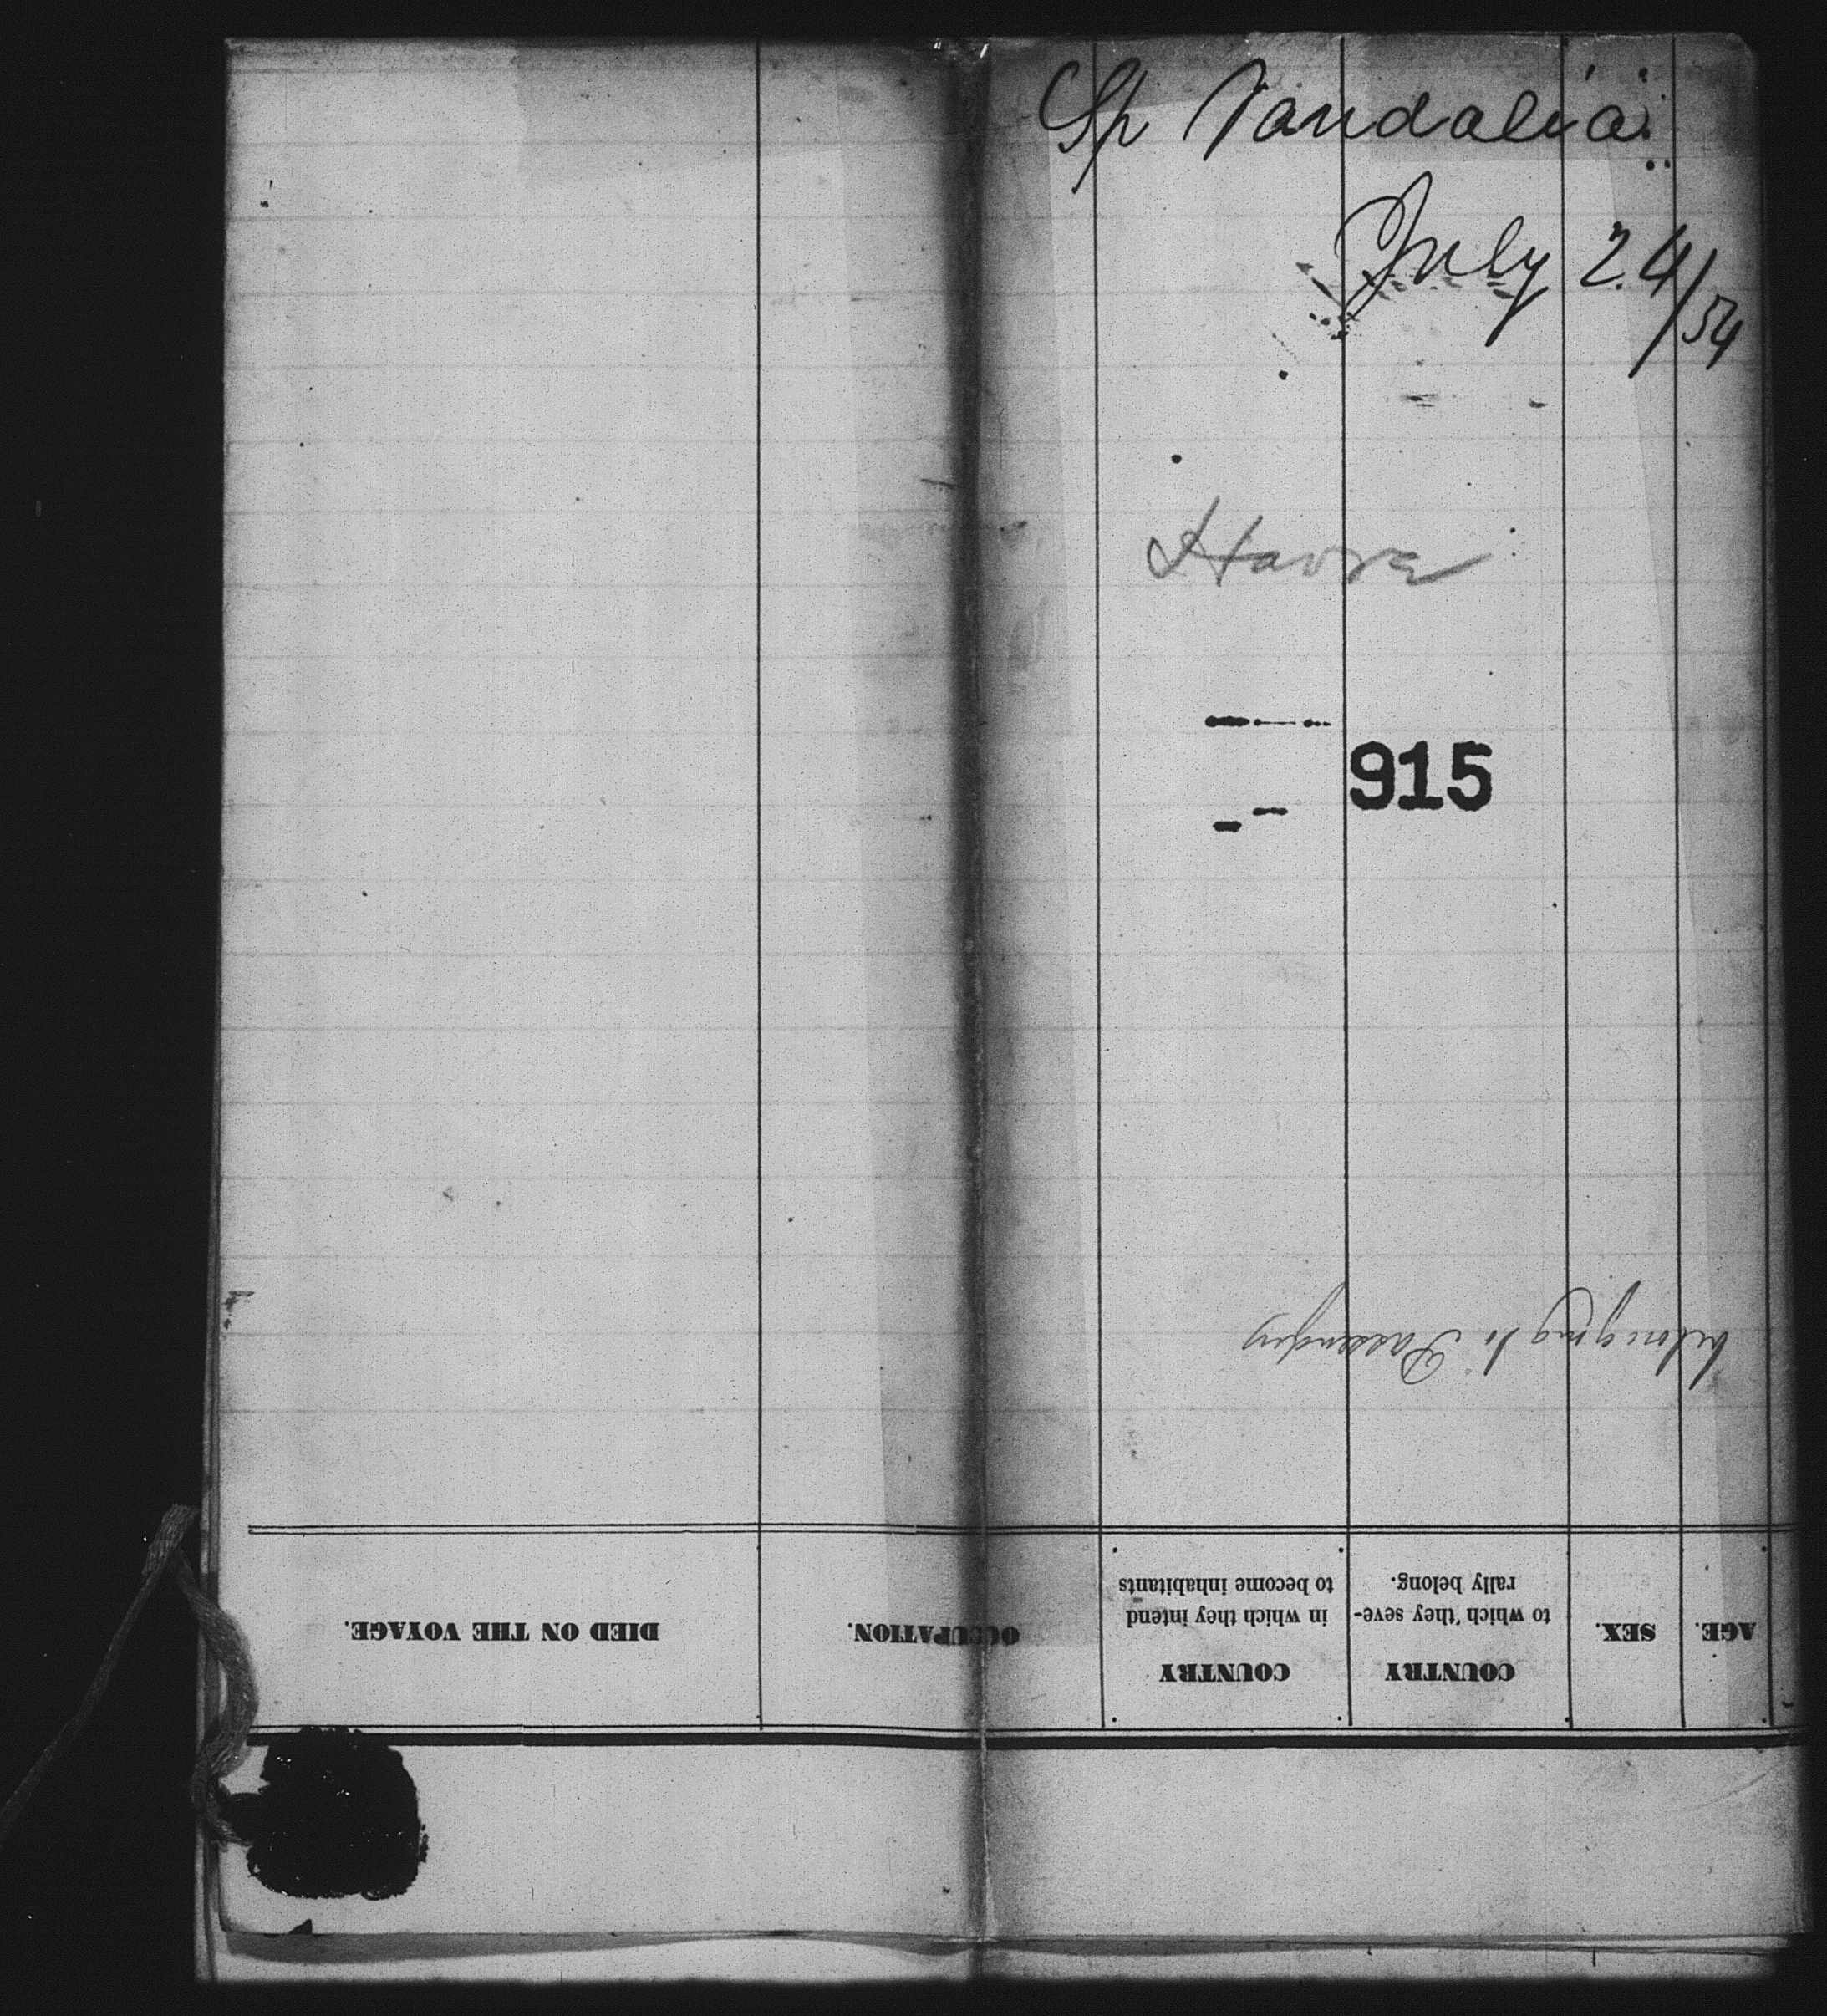 Sp Vandalia
July 24/54
Havre
915
belonging to Passengers
AGE. SEX. COUNTRY to which they seve-rally belong. COUNTRY in which they intend to become inhabitants OCCUPATION. DIED ON THE VOYAGE.